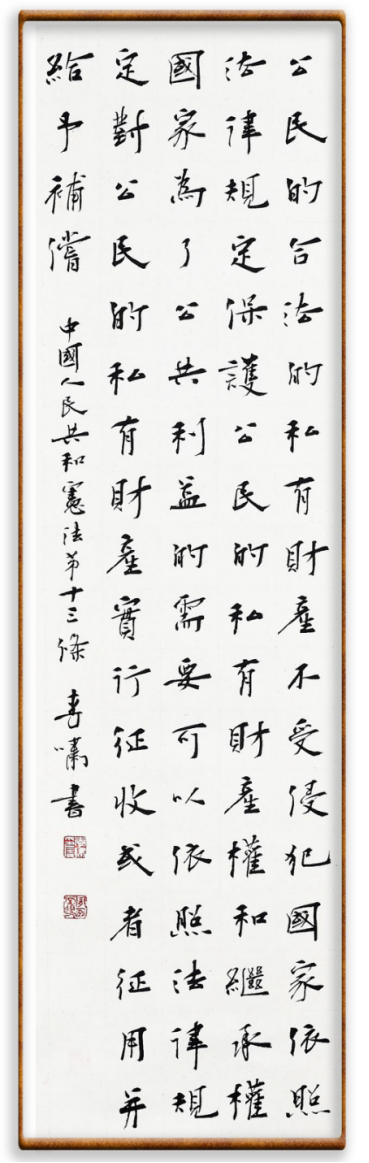 公民的合法的私有財產不受侵犯國家依照
法律規定保護公民的私有財產權和繼承權
國家為了公共利益的需要可以依照法律規
定對公民的私有財產實行征收或者征用并
給予補償 中國人民共和憲法第十三條 嘯書